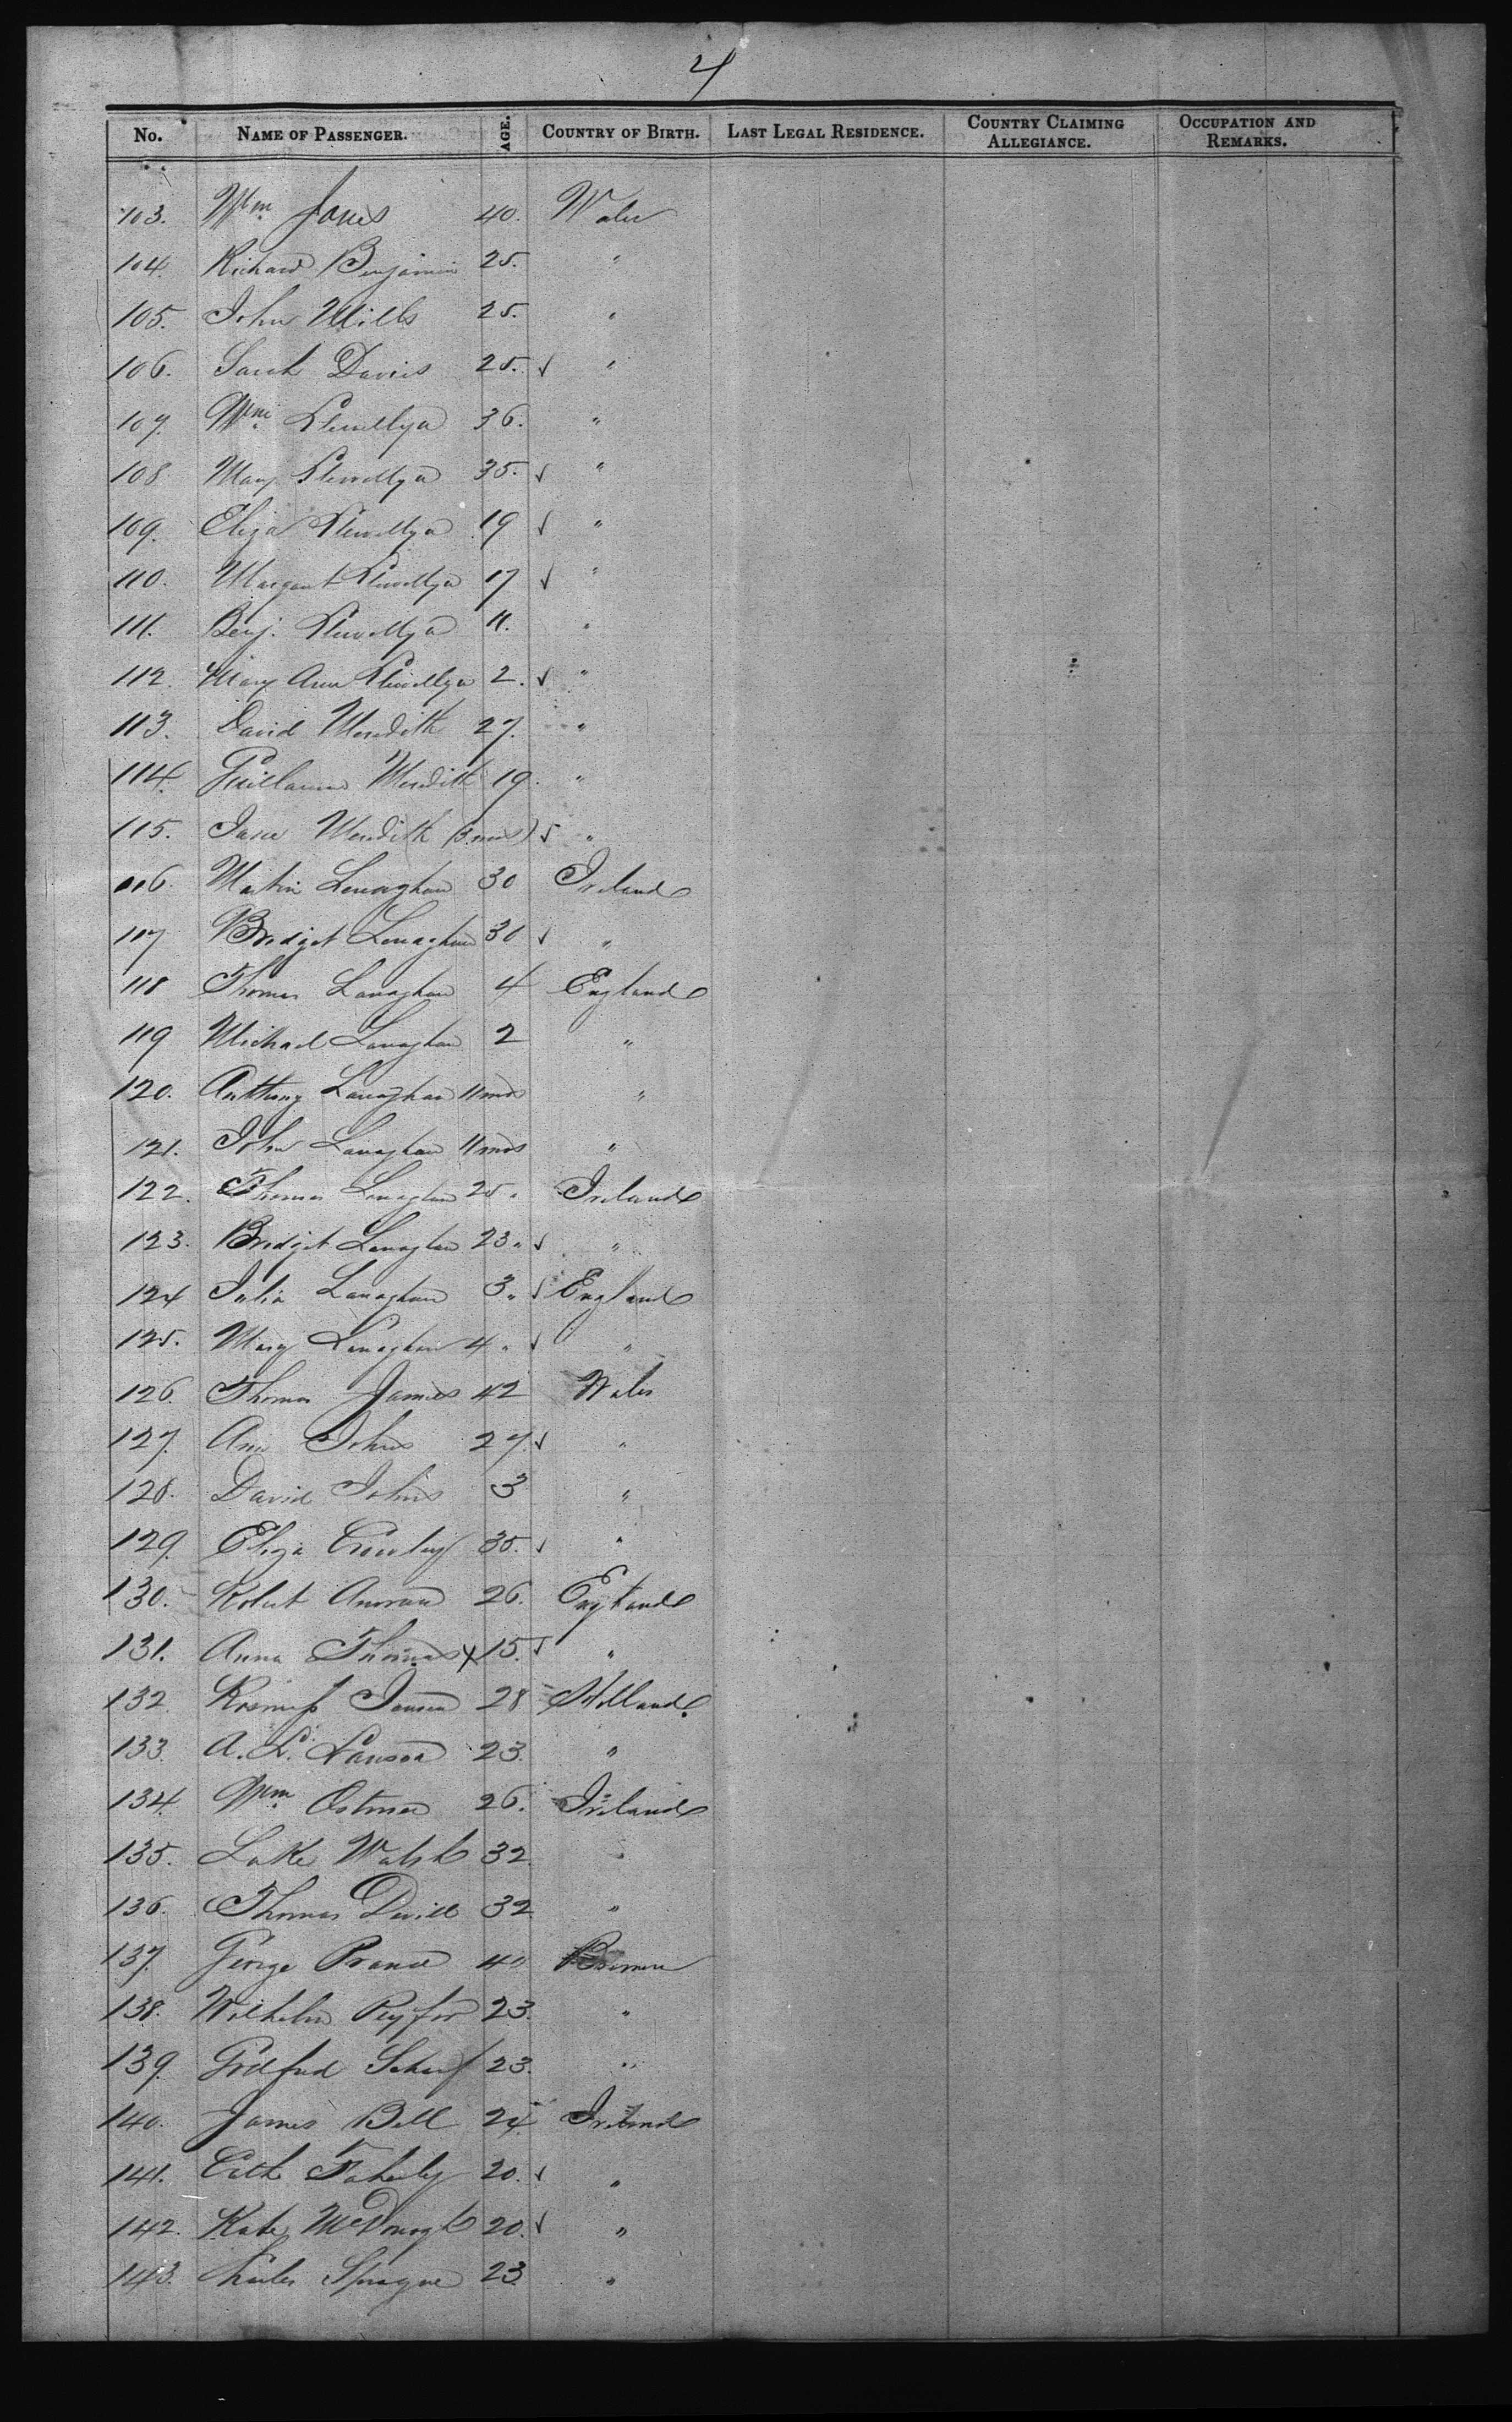 4
No. NAME OF PASSENGER. AGE. COUNTRY OF BIRTH. LAST LEGAL RESIDENCE. COUNTRY CLAIMING ALLEGIANCE. OCCUPATION AND REMARKS.
103. Wm Jones 40. Wales
104. Richard Benjamin 25. "
105. John Mills 25. "
106. Sarah Davies 25. ✓ "
107. Wm Llewellyn 36. "
108 Mary Llewellyn 35. ✓ "
109. Eliza Llewellyn 19 ✓ "
110. Margaret Llewellyn 17 ✓ "
111. Benj. Llewellyn 11. "
112. Mary Ann Llewellyn 2. ✓ "
113. David Meredith 27. "
114. Meredith 19. "
115. Jane Meredith (3 mos) ✓ "
116. Martin Lanaghan 30 Ireland
117 Bridget Lanaghan 30 ✓ "
118 Thomas Lanaghan 4 England
119 Michael Lanaghan 2 "
120. Anthony Lanaghan 11 mos "
121. John Lanaghan 11 mos "
122. Thomas Lanaghan 25. Ireland
123. Bridget Lanaghan 23. ✓ "
124 Julia Lanaghan 3. ✓ England
125. Mary Lanaghan 4. ✓ "
126. Thomas James 42 Wales
127. Ann Johns 27. ✓ "
128. David Johns 3 "
129. Eliza Crowley 35. ✓ "
130. Robert 26. England
131. Anna Thomas X 15. ✓ "
132. Jansen 28 Holland.
133. A. L. Lawson 23. "
134. Wm 26. Ireland
135. Luke Walsh 32. "
136. Thomas 32 "
137. George 40 Bremen
138. Wilhelm 23. "
139. 23. "
140. James Bell 24. Ireland
141. Cath Faherty 20. ✓ "
142. Kate McDonogh 20. ✓ "
143. Charles Sprague 23. "